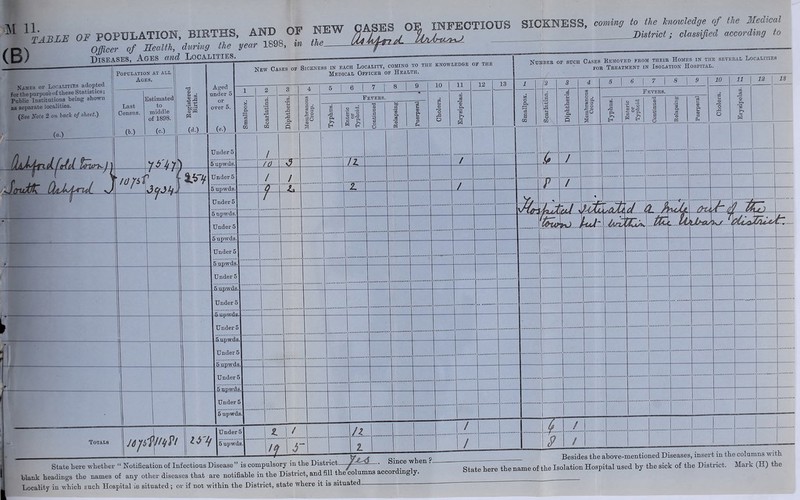 M 11.
(B)
TABLE OF POPULATION, BIRTHS, AND OF NEW CASES OF INFECTIOUS SICKNESS, coming to the knowledge of the Medical
Officer of Health, during the year 1898, in the Ashford Urban District; classified according to
DISEASES, AGES AND LOCALITIES.
NAMES OF LOCALITIES adopted for the purpose of these Statistics; Public Institutions being shown as separate localities.
(See Note 2 on back of sheet.)
(a.)
POPULATION AT ALL AGES.
Last Census.
(b.)
Estimated to middle of 1898.
(c.)
Registered Births.
(d.)
Aged under 5 or over 5.
(e.)
NEW CASES OF SICKNESS IN EACH LOCALITY, COMING TO THE KNOWLEDGE OF THE MEDICAL OFFICER OF HEALTH.
1 2 3 4 5 6 7 8 9 10 11 12 13
Smallpox. Scarlatina. Diphtheria. Membranous Croup. FEVERS. Typhus. Enteric or Typhoid. Continued. Relapsing. Puerperal. Cholera. Erysipelas.
NUMBER OF SUCH CASES REMOVED FROM THEIR HOMES IN THE SEVERAL LOCALITIES FOR TREATMENT IN ISOLATION HOSPITAL.
1 2 3 4 5 6 7 8 9 10 11 12 13
Smallpox. Scarlatina. Diphtheria. Membranous Croup. FEVERS. Typhus. Enteric or Typhoid. Continued. Relapsing. Puerperal. Cholera. Erysipelas.
Ashford (old Town) 7547 Under 5 1
5 upwds. 10 3 12 1 6 1
South Ashford 3934 254 Under 5 1 1
5 upwds. 9 2 2 1 8 1
Under 5
5 upwds. Hospital situated a mile out of the
Under 5 town but within the Urban district.
5 upwds.
Under 5
5 upwds.
Under 5
5 upwds.
Under 5
5 upwds.
Under 5
5 upwds.
Under 5
5 upwds.
Under 5
5 upwds.
Under 5
5 upwds.
TOTALS 254 Under 5 2 1 12 1 6 1
5 upwds. 19 5 2 1 8 1
State here whether "Notification of Infectious Disease" is compulsory in the District Yes. Since when?
Besides the above-mentioned Diseases, insert in the columns with
blank headings the names of any other diseases that are notifiable in the District, and fill the columns accordingly. State here the name of the Isolation Hospital used by the sick of the District. Mark (H) the
Locality in which such Hospital is situated; or if not within the District, state where it is situated